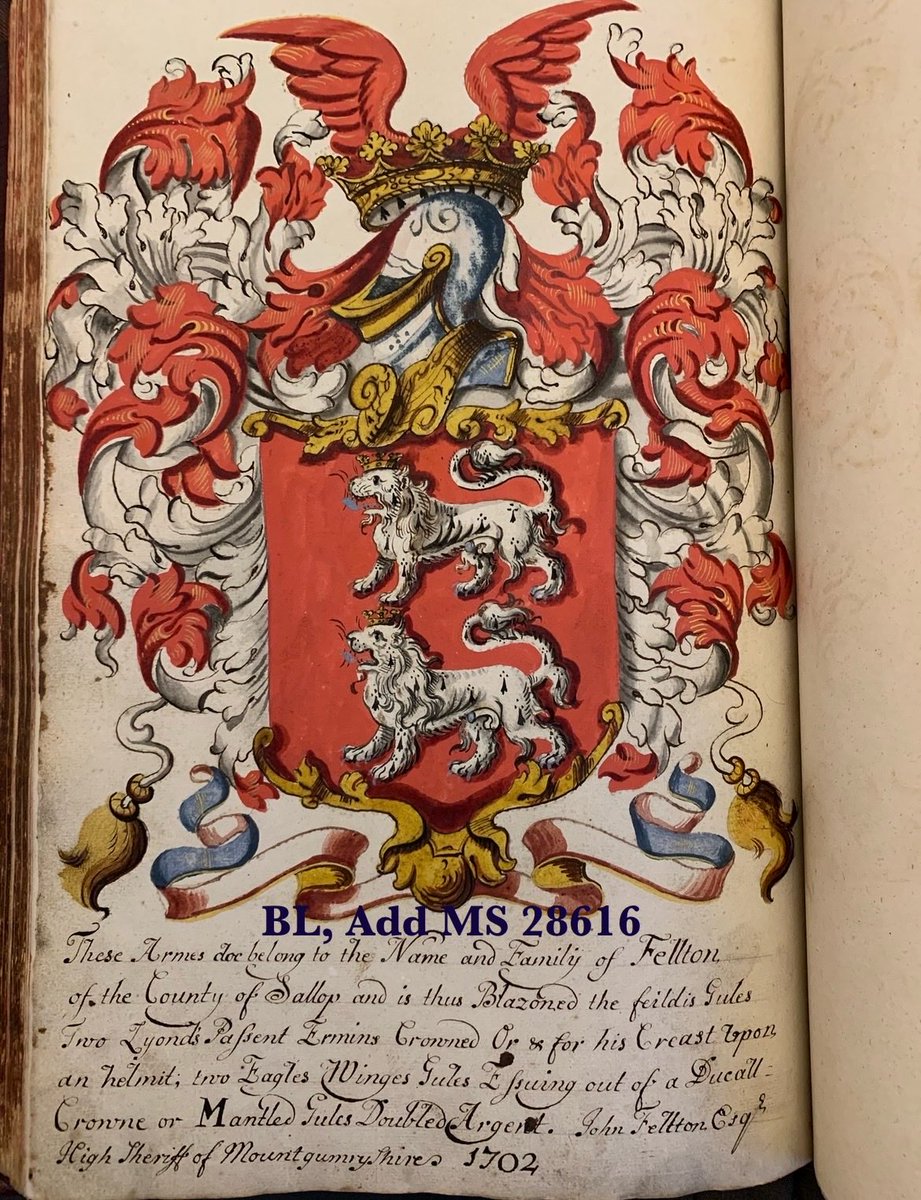 BL, Add MS 28616
These Armes doe belong to the Name and Family of Fellton
of the County of Sallop and is thus Blazoned the feildis Gules
Two Lyonds Passent Ermins Crowned Or & for his Creast Upon
an helmit; two Eagles Winges Gules Essuing out of a Ducall-
Crowne or Mantled Gules Doubled Argent. John Fellton Esqr
High Sheriff of Mountgumryshire 1702